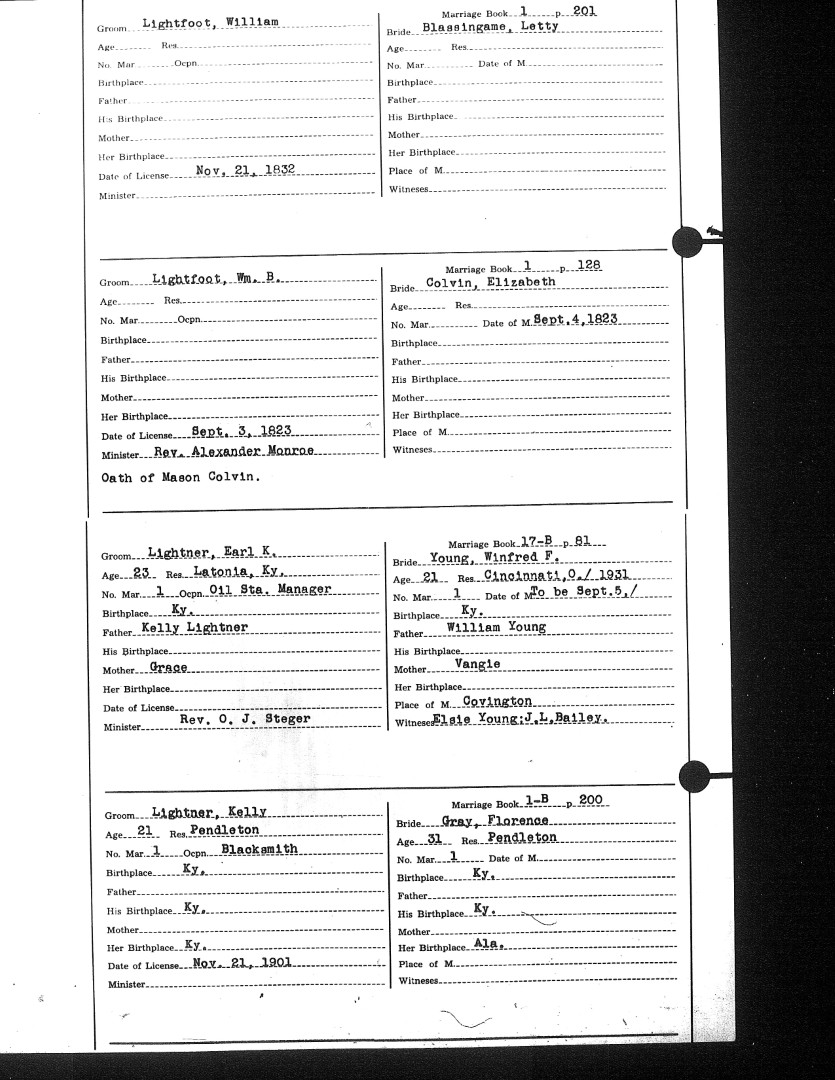 Groom Lightfoot, William
Age Res.
No. Mar. Ocpn.
Birthplace
Father
His Birthplace
Mother
Her Birthplace
Date of License Nov. 21, 1832
Minister
Marriage Book 1 p. 201
Bride Blassingame, Letty
Age Res.
No. Mar. Date of M.
Birthplace
Father
His Birthplace
Mother
Her Birthplace
Place of M.
Witneses
Groom Lightfoot, Wm. B.
Age Res.
No. Mar. Ocpn.
Birthplace
Father
His Birthplace
Mother
Her Birthplace
Date of License Sept. 3, 1823
Minister Rev. Alexander Monroe
Oath of Mason Colvin.
Marriage Book 1 p. 128
Bride Colvin, Elizabeth
Age Res.
No. Mar. Date of M. Sept.4,1823
Birthplace
Father
His Birthplace
Mother
Her Birthplace
Place of M.
Witneses
Groom Lightner, Earl K.
Age 23 Res. Latonia, Ky.
No. Mar. 1 Ocpn. Oil Sta. Manager
Birthplace Ky.
Father Kelly Lightner
His Birthplace
Mother Grace
Her Birthplace
Date of License
Minister Rev. O. J. Steger
Marriage Book 17-B p. 81
Bride Young, Winfred F.
Age 21 Res. Cincinnati,O./ 1931
No. Mar. 1 Date of M. To be Sept.5,/
Birthplace Ky.
Father William Young
His Birthplace
Mother Vangie
Her Birthplace
Place of M. Covington
Witneses Elsie Young;J.L.Bailey.
Groom Lightner, Kelly
Age 21 Res. Pendleton
No. Mar. 1 Ocpn. Blacksmith
Birthplace Ky.
Father
His Birthplace Ky.
Mother
Her Birthplace Ky.
Date of License Nov. 21, 1901
Minister
Marriage Book 1-B p. 200
Bride Gray, Florence
Age 31 Res. Pendleton
No. Mar. 1 Date of M.
Birthplace Ky.
Father
His Birthplace Ky.
Mother
Her Birthplace Ala.
Place of M.
Witneses